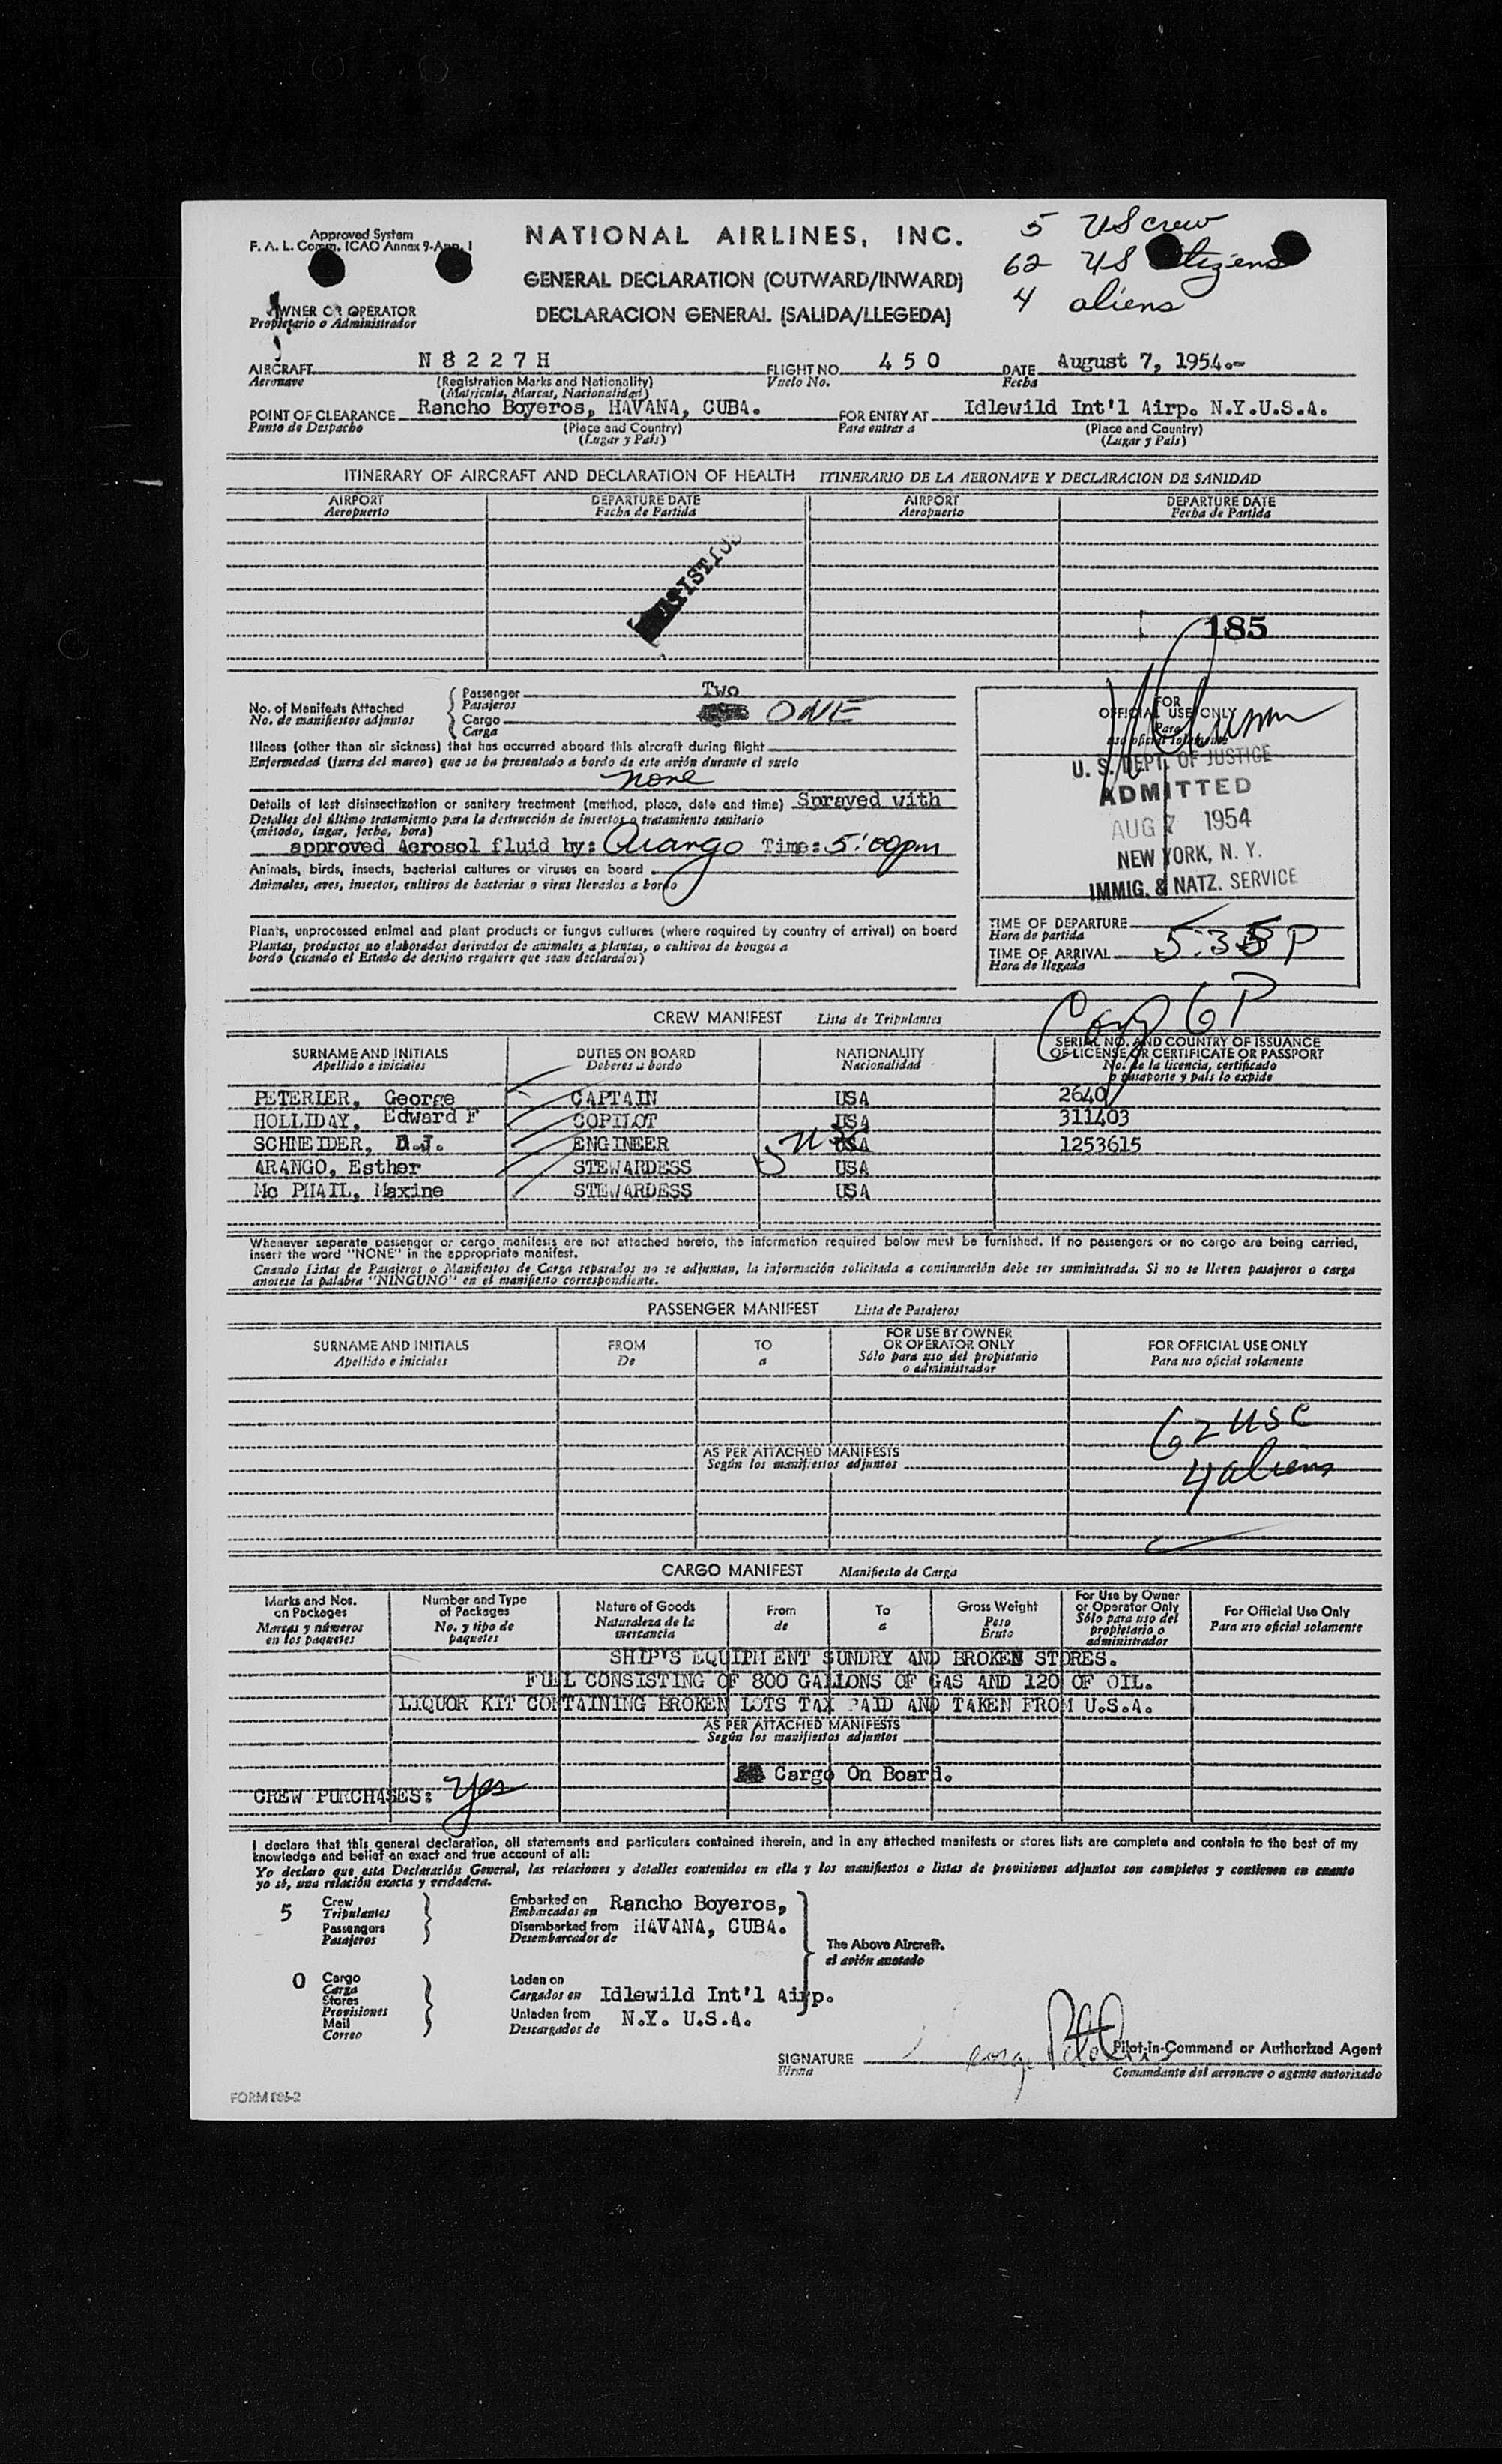 Approved System
F. A. L. Comm. ICAO Annex 9-App. I
NATIONAL AIRLINES, INC.
5 US crew
62 US citizens
4 aliens
GENERAL DECLARATION (OUTWARD/INWARD)
DECLARACION GENERAL (SALIDA/LLEGEDA)
OWNER OR OPERATOR
Propietario o Administrador
AIRCRAFT N 8 2 2 7 H FLIGHT NO. 4 5 0 DATE August 7, 1954.-
Aeronave (Registration Marks and Nationality) Vuelo No. Fecha
(Matricula, Marcas, Nacionalidad)
POINT OF CLEARANCE Rancho Boyeros, HAVANA, CUBA. FOR ENTRY AT Idlewild Int'l Airp. N.Y.U.S.A.
Punto de Despacho (Place and Country) Para entrar a (Place and Country)
(Lugar y País) (Lugar y País)
ITINERARY OF AIRCRAFT AND DECLARATION OF HEALTH ITINERARIO DE LA AERONAVE Y DECLARACION DE SANIDAD
AIRPORT DEPARTURE DATE AIRPORT DEPARTURE DATE
Aeropuerto Fecha de Partida Aeropuerto Fecha de Partida
185
No. of Manifests Attached
No. de manifiestos adjuntos
Passenger Two
Pasajeros
Cargo ONE
Carga
Illness (other than air sickness) that has occurred aboard this aircraft during flight
Enfermedad (fuera del mareo) que se ha presentado a bordo de este avión durante el vuelo
none
Details of last disinsectization or sanitary treatment (method, place, date and time) Sprayed with
Detalles del último tratamiento para la destrucción de insectos o tratamiento sanitario
(método, lugar, fecha, hora)
approved Aerosol fluid by: Arango Time: 5:00pm
Animals, birds, insects, bacterial cultures or viruses on board
Animales, aves, insectos, cultivos de bacterias o virus llevados a bordo
Plants, unprocessed animal and plant products or fungus cultures (where required by country of arrival) on board
Plantas, productos no elaborados derivados de animales a plantas, o cultivos de hongos a
bordo (cuando el Estado de destino requiere que sean declarados)
FOR
OFFICIAL USE ONLY
Para
uso oficial solamente
U. S. DEPT. OF JUSTICE
ADMITTED
AUG 7 1954
NEW YORK, N. Y.
IMMIG. & NATZ. SERVICE
TIME OF DEPARTURE
Hora de partida
TIME OF ARRIVAL 5:35 P
Hora de llegada
6 P
CREW MANIFEST Lista de Tripulantes
SURNAME AND INITIALS DUTIES ON BOARD NATIONALITY SERIAL NO. AND COUNTRY OF ISSUANCE
Apellido e iniciales Deberes a bordo Nacionalidad OF LICENSE OR CERTIFICATE OR PASSPORT
No. de la licencia, certificado
o pasaporte y país lo expide
PETERIER, George CAPTAIN USA 2640
HOLLIDAY, Edward F COPILOT USA 311403
SCHNEIDER, D.J. ENGINEER USA 1253615
ARANGO, Esther STEWARDESS USA
Mc PHAIL, Maxine STEWARDESS USA
Whenever separate passenger or cargo manifests are not attached hereto, the information required below must be furnished. If no passengers or no cargo are being carried,
insert the word "NONE" in the appropriate manifest.
Cuando Listas de Pasajeros o Manifiestos de Carga separados no se adjuntan, la información solicitada a continuación debe ser suministrada. Si no se lleven pasajeros o carga
anotese la palabra "NINGUNO" en el manifiesto correspondiente.
PASSENGER MANIFEST Lista de Pasajeros
SURNAME AND INITIALS FROM TO FOR USE BY OWNER FOR OFFICIAL USE ONLY
Apellido e iniciales De a OR OPERATOR ONLY Para uso oficial solamente
Sólo para uso del propietario
o administrador
62 USC
4 aliens
AS PER ATTACHED MANIFESTS
Según los manifiestos adjuntos
CARGO MANIFEST Manifiesto de Carga
Marks and Nos. on Packages Number and Type of Packages Nature of Goods From To Gross Weight For Use by Owner or Operator Only For Official Use Only
Marcas y números en los paquetes No. y tipo de paquetes Naturaleza de la mercancia de a Peso Bruto Sólo para uso del propietario o administrador Para uso oficial solamente
SHIP'S EQUIPMENT SUNDRY AND BROKEN STORES.
FUEL CONSISTING OF 800 GALLONS OF GAS AND 120 OF OIL.
LIQUOR KIT CONTAINING BROKEN LOTS TAX PAID AND TAKEN FROM U.S.A.
AS PER ATTACHED MANIFESTS
Según los manifiestos adjuntos
Cargo On Board.
CREW PURCHASES: Yes
I declare that this general declaration, all statements and particulars contained therein, and in any attached manifests or stores lists are complete and contain to the best of my
knowledge and belief an exact and true account of all:
Yo declaro que esta Declaración General, las relaciones y detalles contenidos en ella y los manifiestos o listas de provisiones adjuntos son completos y contienen en cuanto
yo sé, una relación exacta y verdadera.
5 Crew Embarked on Rancho Boyeros,
Tripulantes Embarcados en
Passengers Disembarked from HAVANA, CUBA.
Pasajeros Desembarcados de
The Above Aircraft.
el avión anotado
0 Cargo Laden on
Carga Cargados en Idlewild Int'l Airp.
Stores
Provisiones Unladen from N.Y. U.S.A.
Mail Descargados de
Correo
SIGNATURE Pilot-in-Command or Authorized Agent
Firma Comandante del aeronave o agente autorizado
FORM